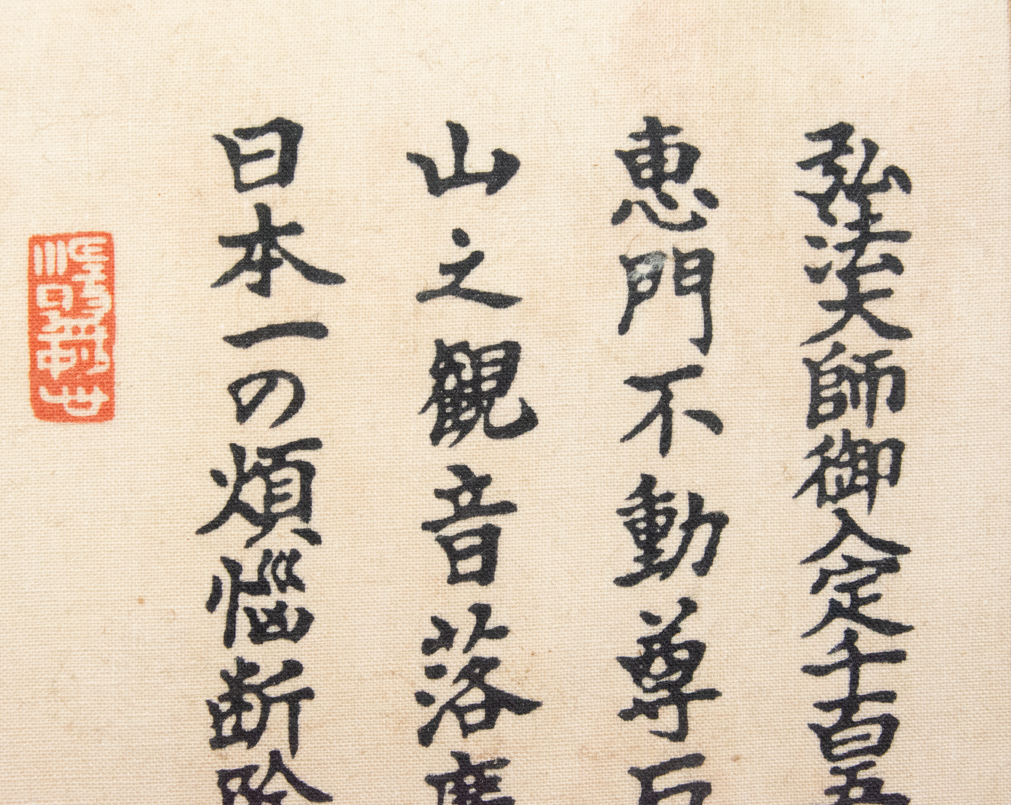 弘法大師御入定千百五
恵門不動尊石
山之観音落慶
日本一の煩悩断除